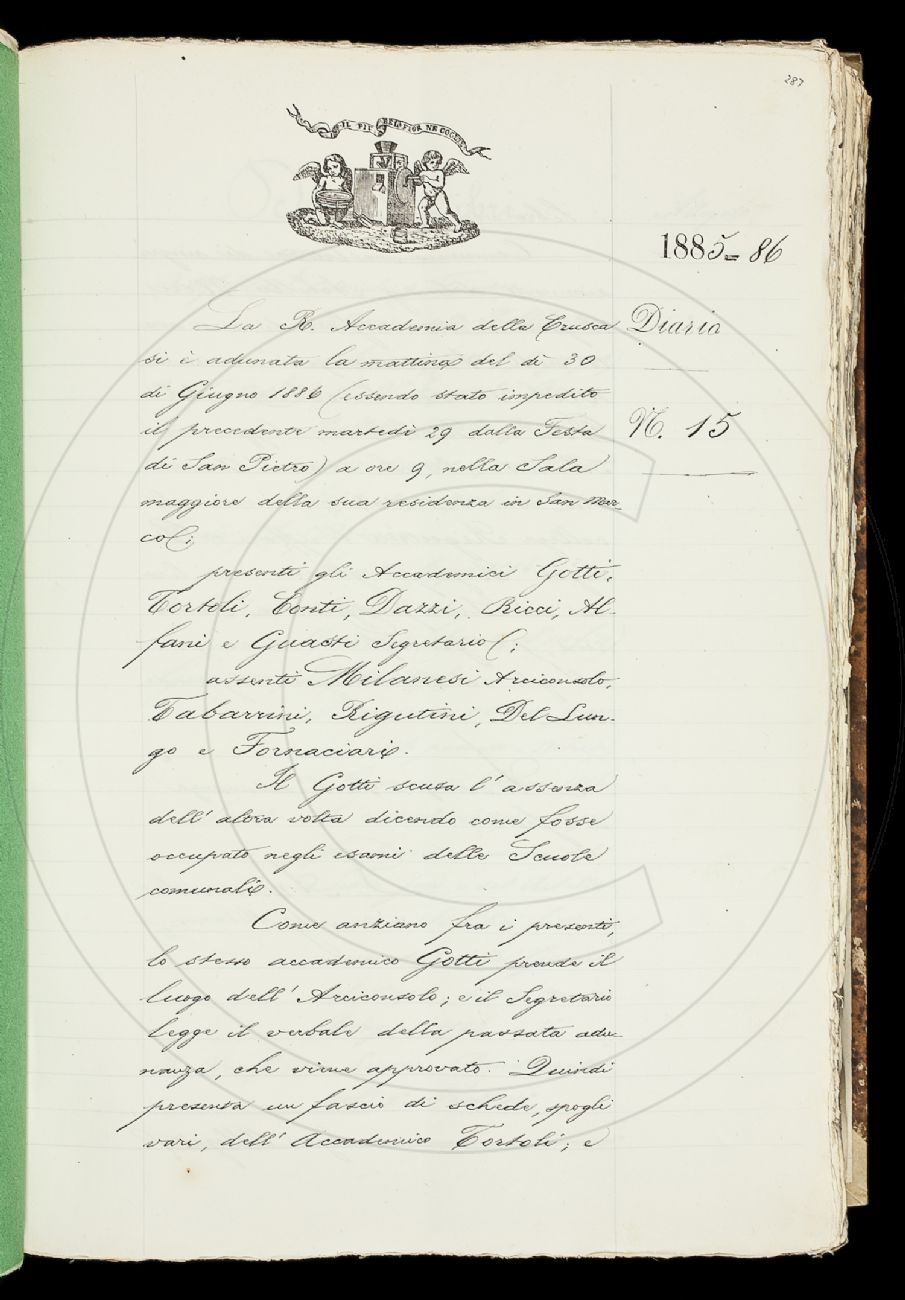 287
IL PIÙ BEL FIOR NE COGLIE
1885=86
Diario
N. 15
La R. Accademia della Crusca
si è adunata la mattina del dì 30
di Giugno 1886 (essendo stato impedito
il precedente martedì 29 dalla Festa
di San Pietro) a ore 9, nella Sala
maggiore della sua residenza in San Mar-
co;
presenti gli Accademici Gotti,
Tortoli, Conti, Dazzi, Ricci, Al-
fani e Guasti Segretario;
assenti Milanesi Arciconsolo,
Tabarrini, Rigutini, Del Lun-
go e Fornaciari.
Il Gotti scusa l'assenza
dell'altra volta dicendo come fosse
occupato negli esami delle Scuole
comunali.
Come anziano fra i presenti,
lo stesso accademico Gotti prende il
luogo dell'Arciconsolo; e il Segretario
legge il verbale della passata adu-
nanza, che viene approvato. Quindi
presenta un fascio di schede, spogli
vari, dell'Accademico Tortoli; e